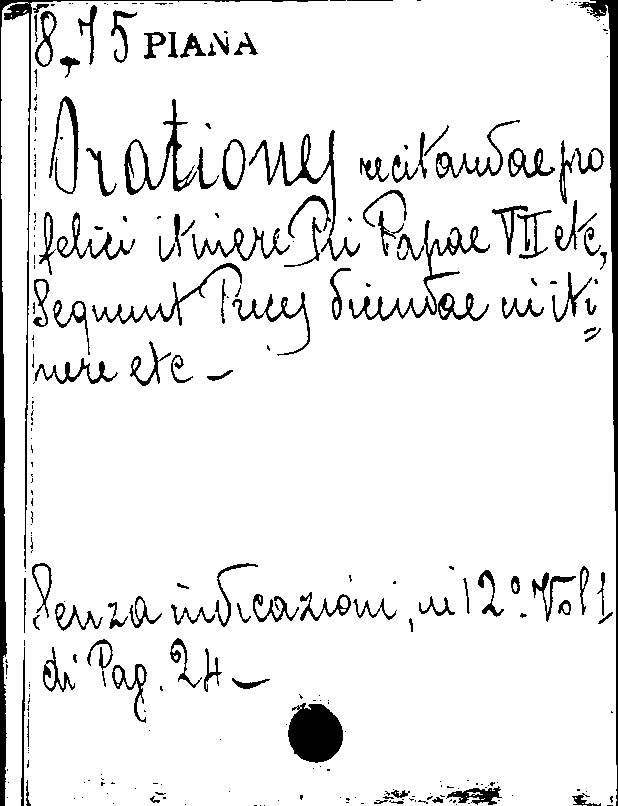 8,75 PIANA
Orationes recitandae pro
felici itinere Pii Papae VII etc,
Sequunt Preces dicendae in iti=
nere etc -
Senza indicazioni, in 12º. Vol 1
di Pag. 24 -